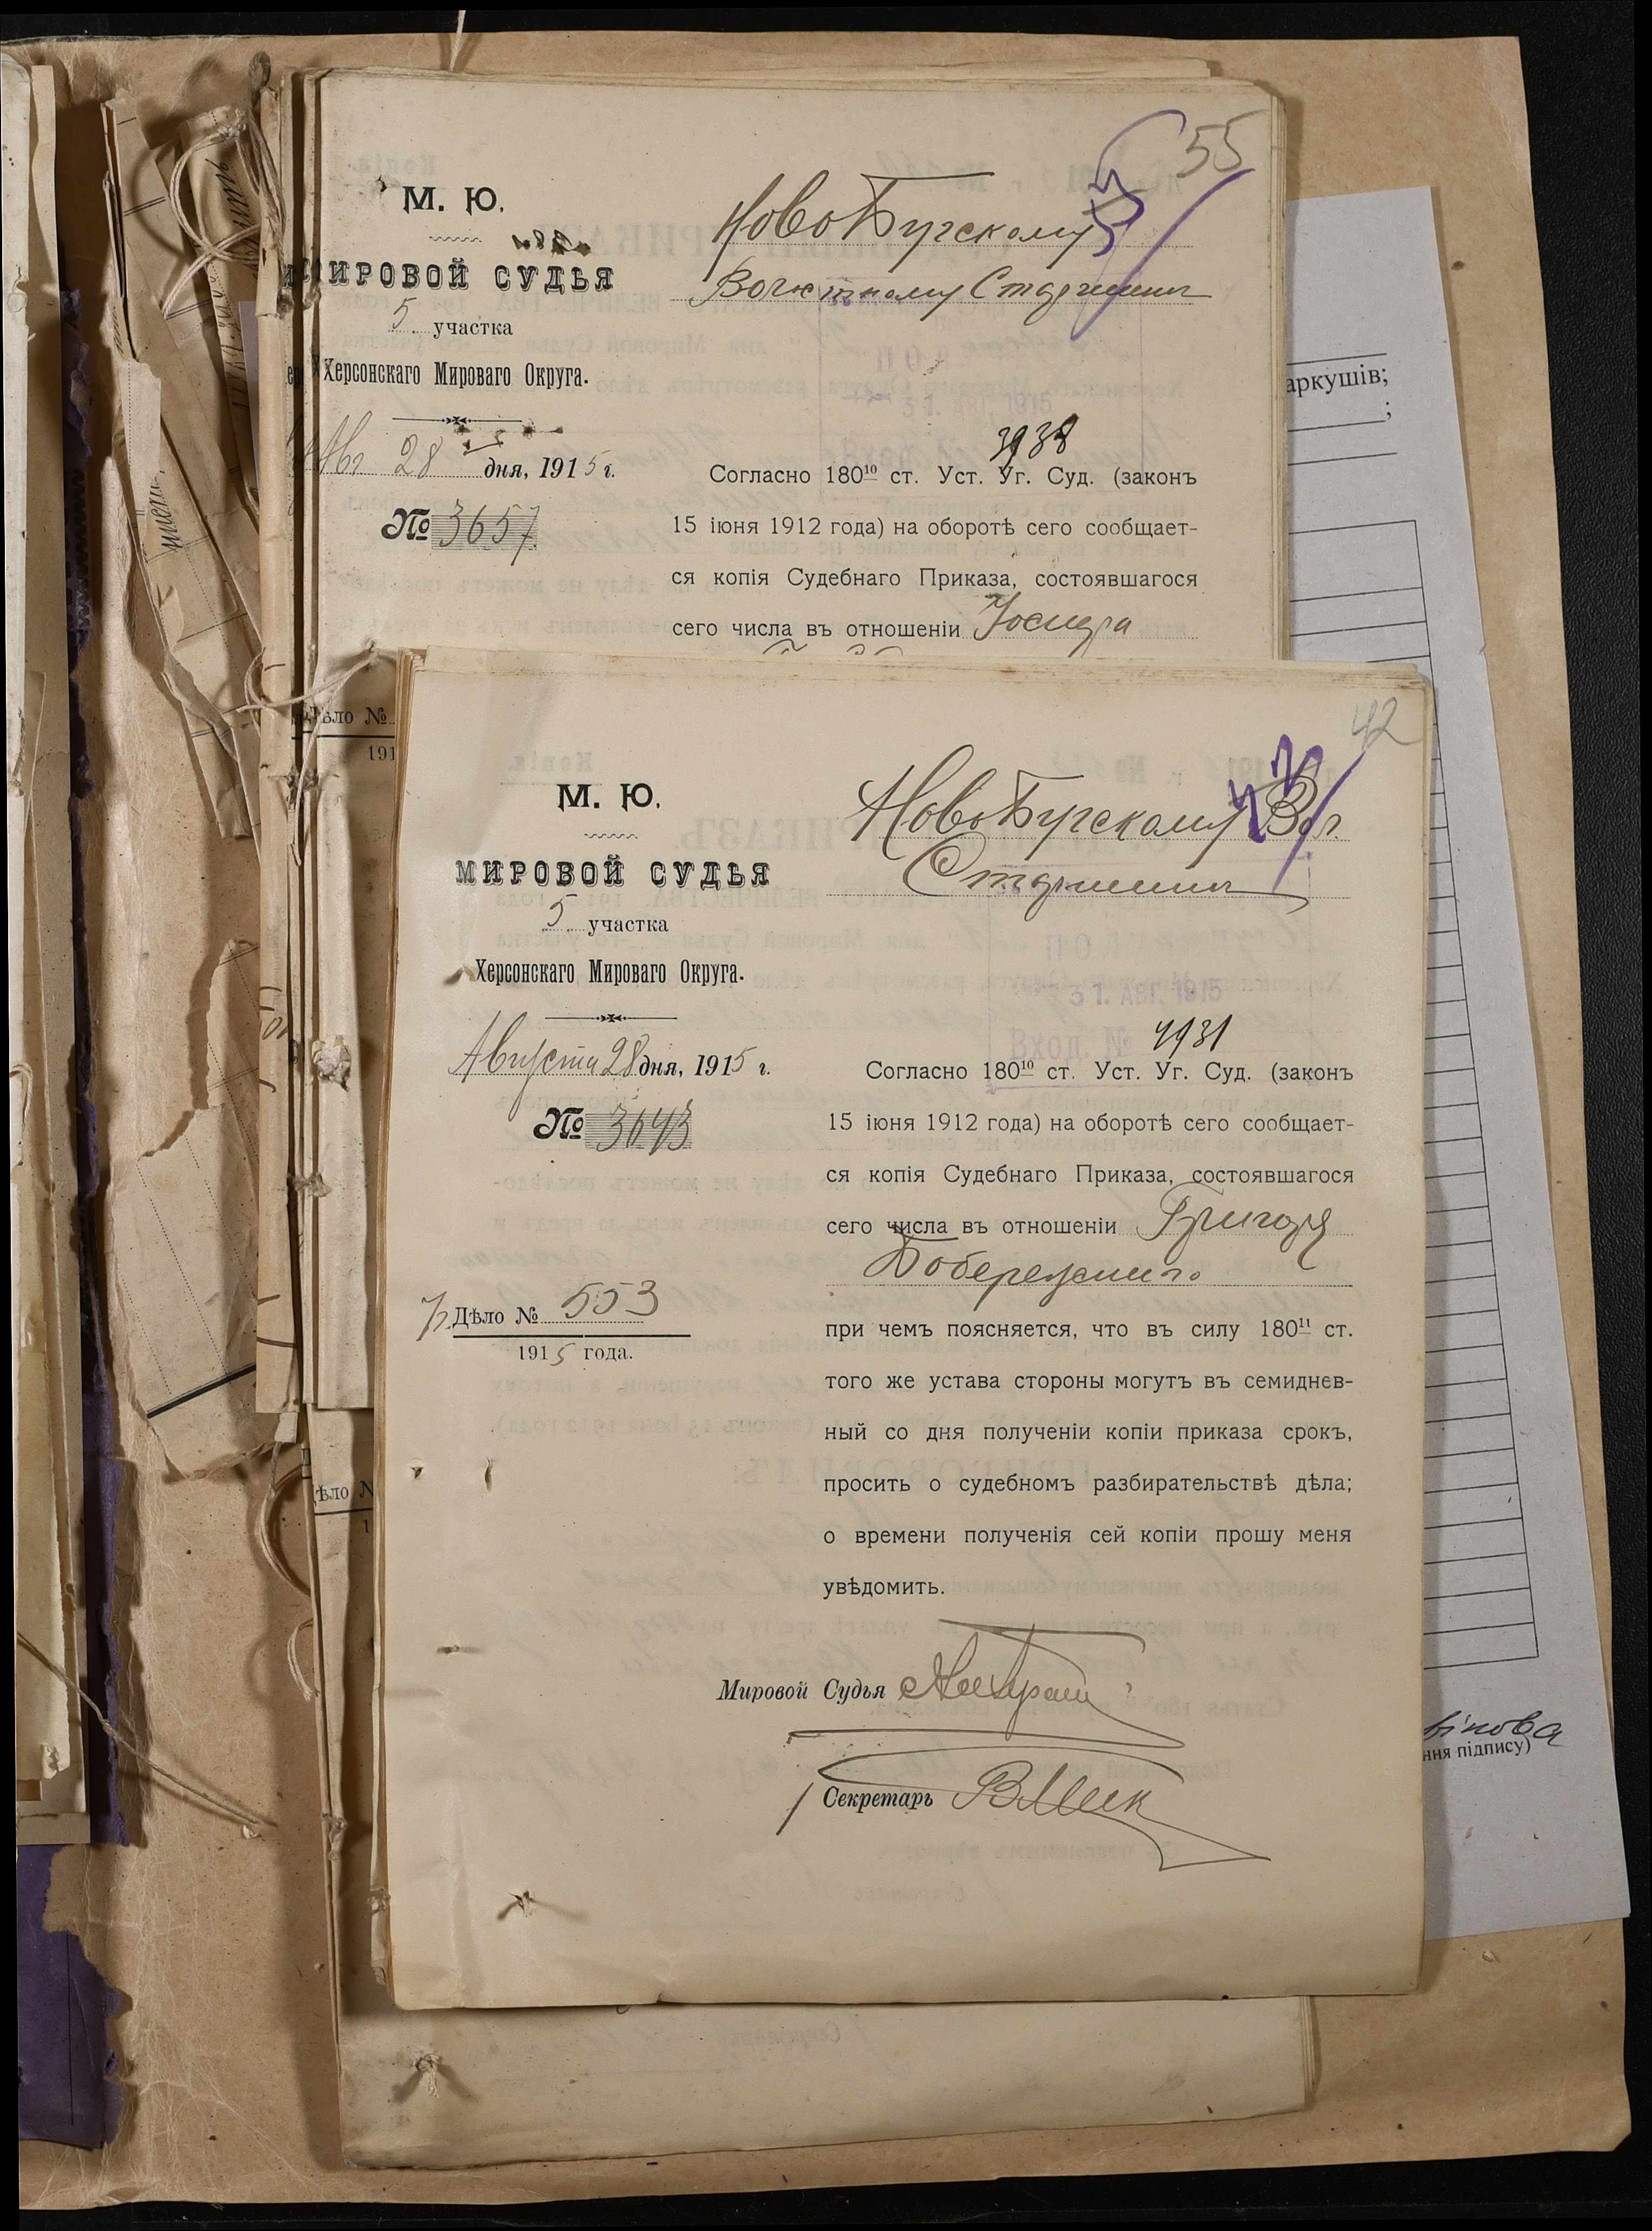 55
М. Ю.
МИРОВОЙ СУДЬЯ
5 участка
Херсонскаго Мироваго Округа.
Авг 28 дня, 1915 г.
№ 3657
НовоБугскому
Волостному Старшинѣ
31. АВГ. 1915
3938
Согласно 180¹⁰ ст. Уст. Уг. Суд. (законъ
15 iюня 1912 года) на оборотѣ сего сообщает-
ся копiя Судебнаго Приказа, состоявшагося
сего числа въ отношенiи Iосифа
Дѣло №
191
ѣло №
1
аркушів;
;
42
М. Ю.
МИРОВОЙ СУДЬЯ
5 участка
Херсонскаго Мироваго Округа.
Августа 28 дня, 1915 г.
№ 3643
Дѣло № 553
1915 года.
НовоБугскому Вол.
Старшинѣ
31. АВГ. 1915
Вход. №
Согласно 180¹⁰ ст. Уст. Уг. Суд. (законъ
15 iюня 1912 года) на оборотѣ сего сообщает-
ся копiя Судебнаго Приказа, состоявшагося
сего числа въ отношенiи Григорiя
при чемъ поясняется, что въ силу 180¹¹ ст.
того же устава стороны могутъ въ семиднев-
ный со дня полученiи копiи приказа срокъ,
просить о судебномъ разбирательствѣ дѣла;
о времени полученiя сей копiи прошу меня
увѣдомить.
Мировой Судья
Секретарь
ння підпису)